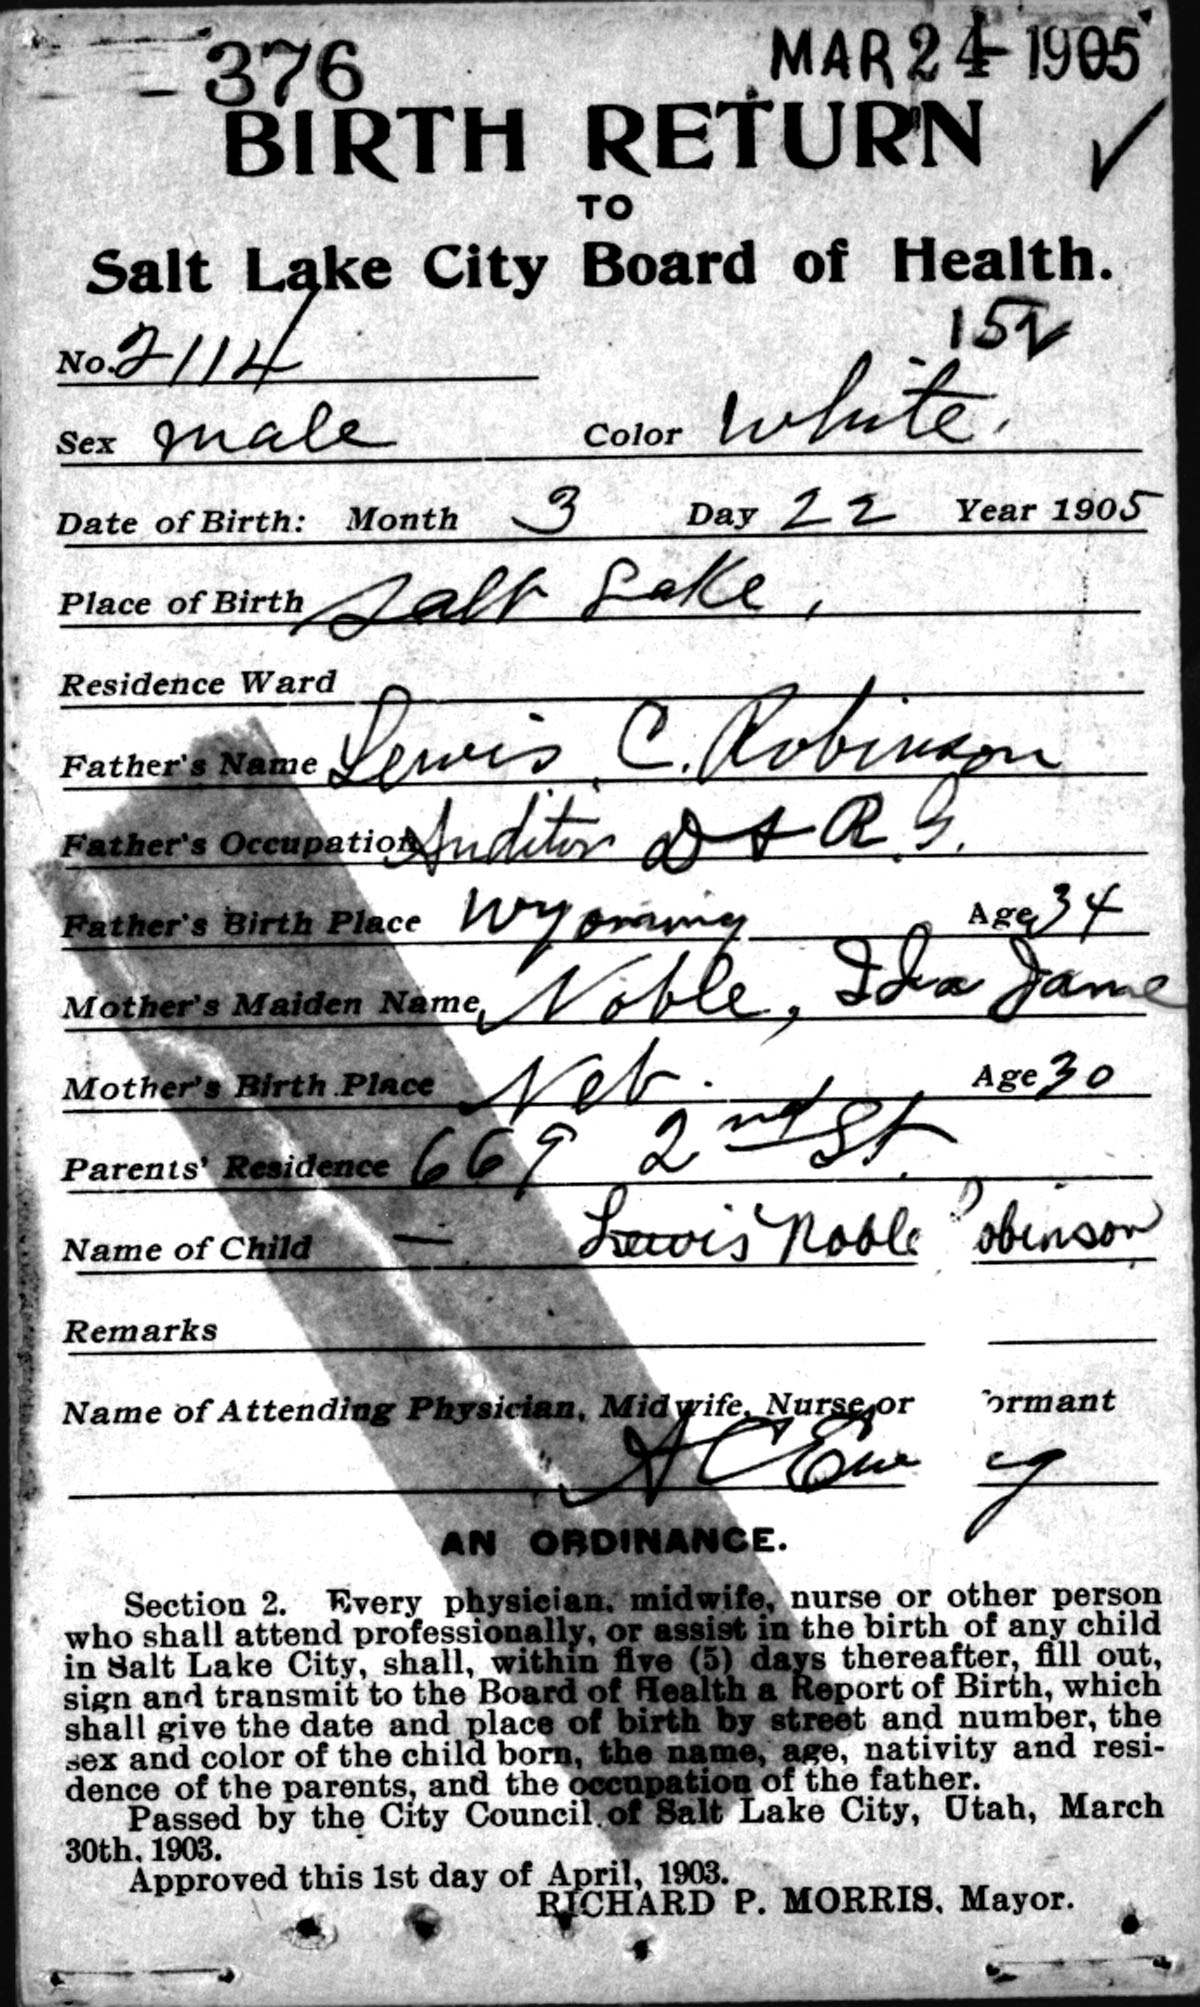 376 MAR 24 1905
BIRTH RETURN
TO
Salt Lake City Board of Health.
No. 2114
Sex male Color White.
Date of Birth: Month 3 Day 22 Year 1905
Place of Birth Salt Lake,
Residence Ward
Father's Name Lewis C. Robinson
Father's Occupation Auditor D & R. G.
Father's Birth Place Wyoming Age 34
Mother's Maiden Name, Noble, Ida Jane
Mother's Birth Place Neb. Age 30
Parents' Residence 669 2nd St.
Name of Child — Lewis Noble obinson
Remarks
Name of Attending Physician, Midwife, Nurse or ormant
A C Ew g
AN ORDINANCE.
Section 2. Every physician, midwife, nurse or other person
who shall attend professionally, or assist in the birth of any child
in Salt Lake City, shall, within five (5) days thereafter, fill out,
sign and transmit to the Board of Health a Report of Birth, which
shall give the date and place of birth by street and number, the
sex and color of the child born, the name, age, nativity and resi-
dence of the parents, and the occupation of the father.
Passed by the City Council of Salt Lake City, Utah, March
30th, 1903.
Approved this 1st day of April, 1903.
RICHARD P. MORRIS, Mayor.